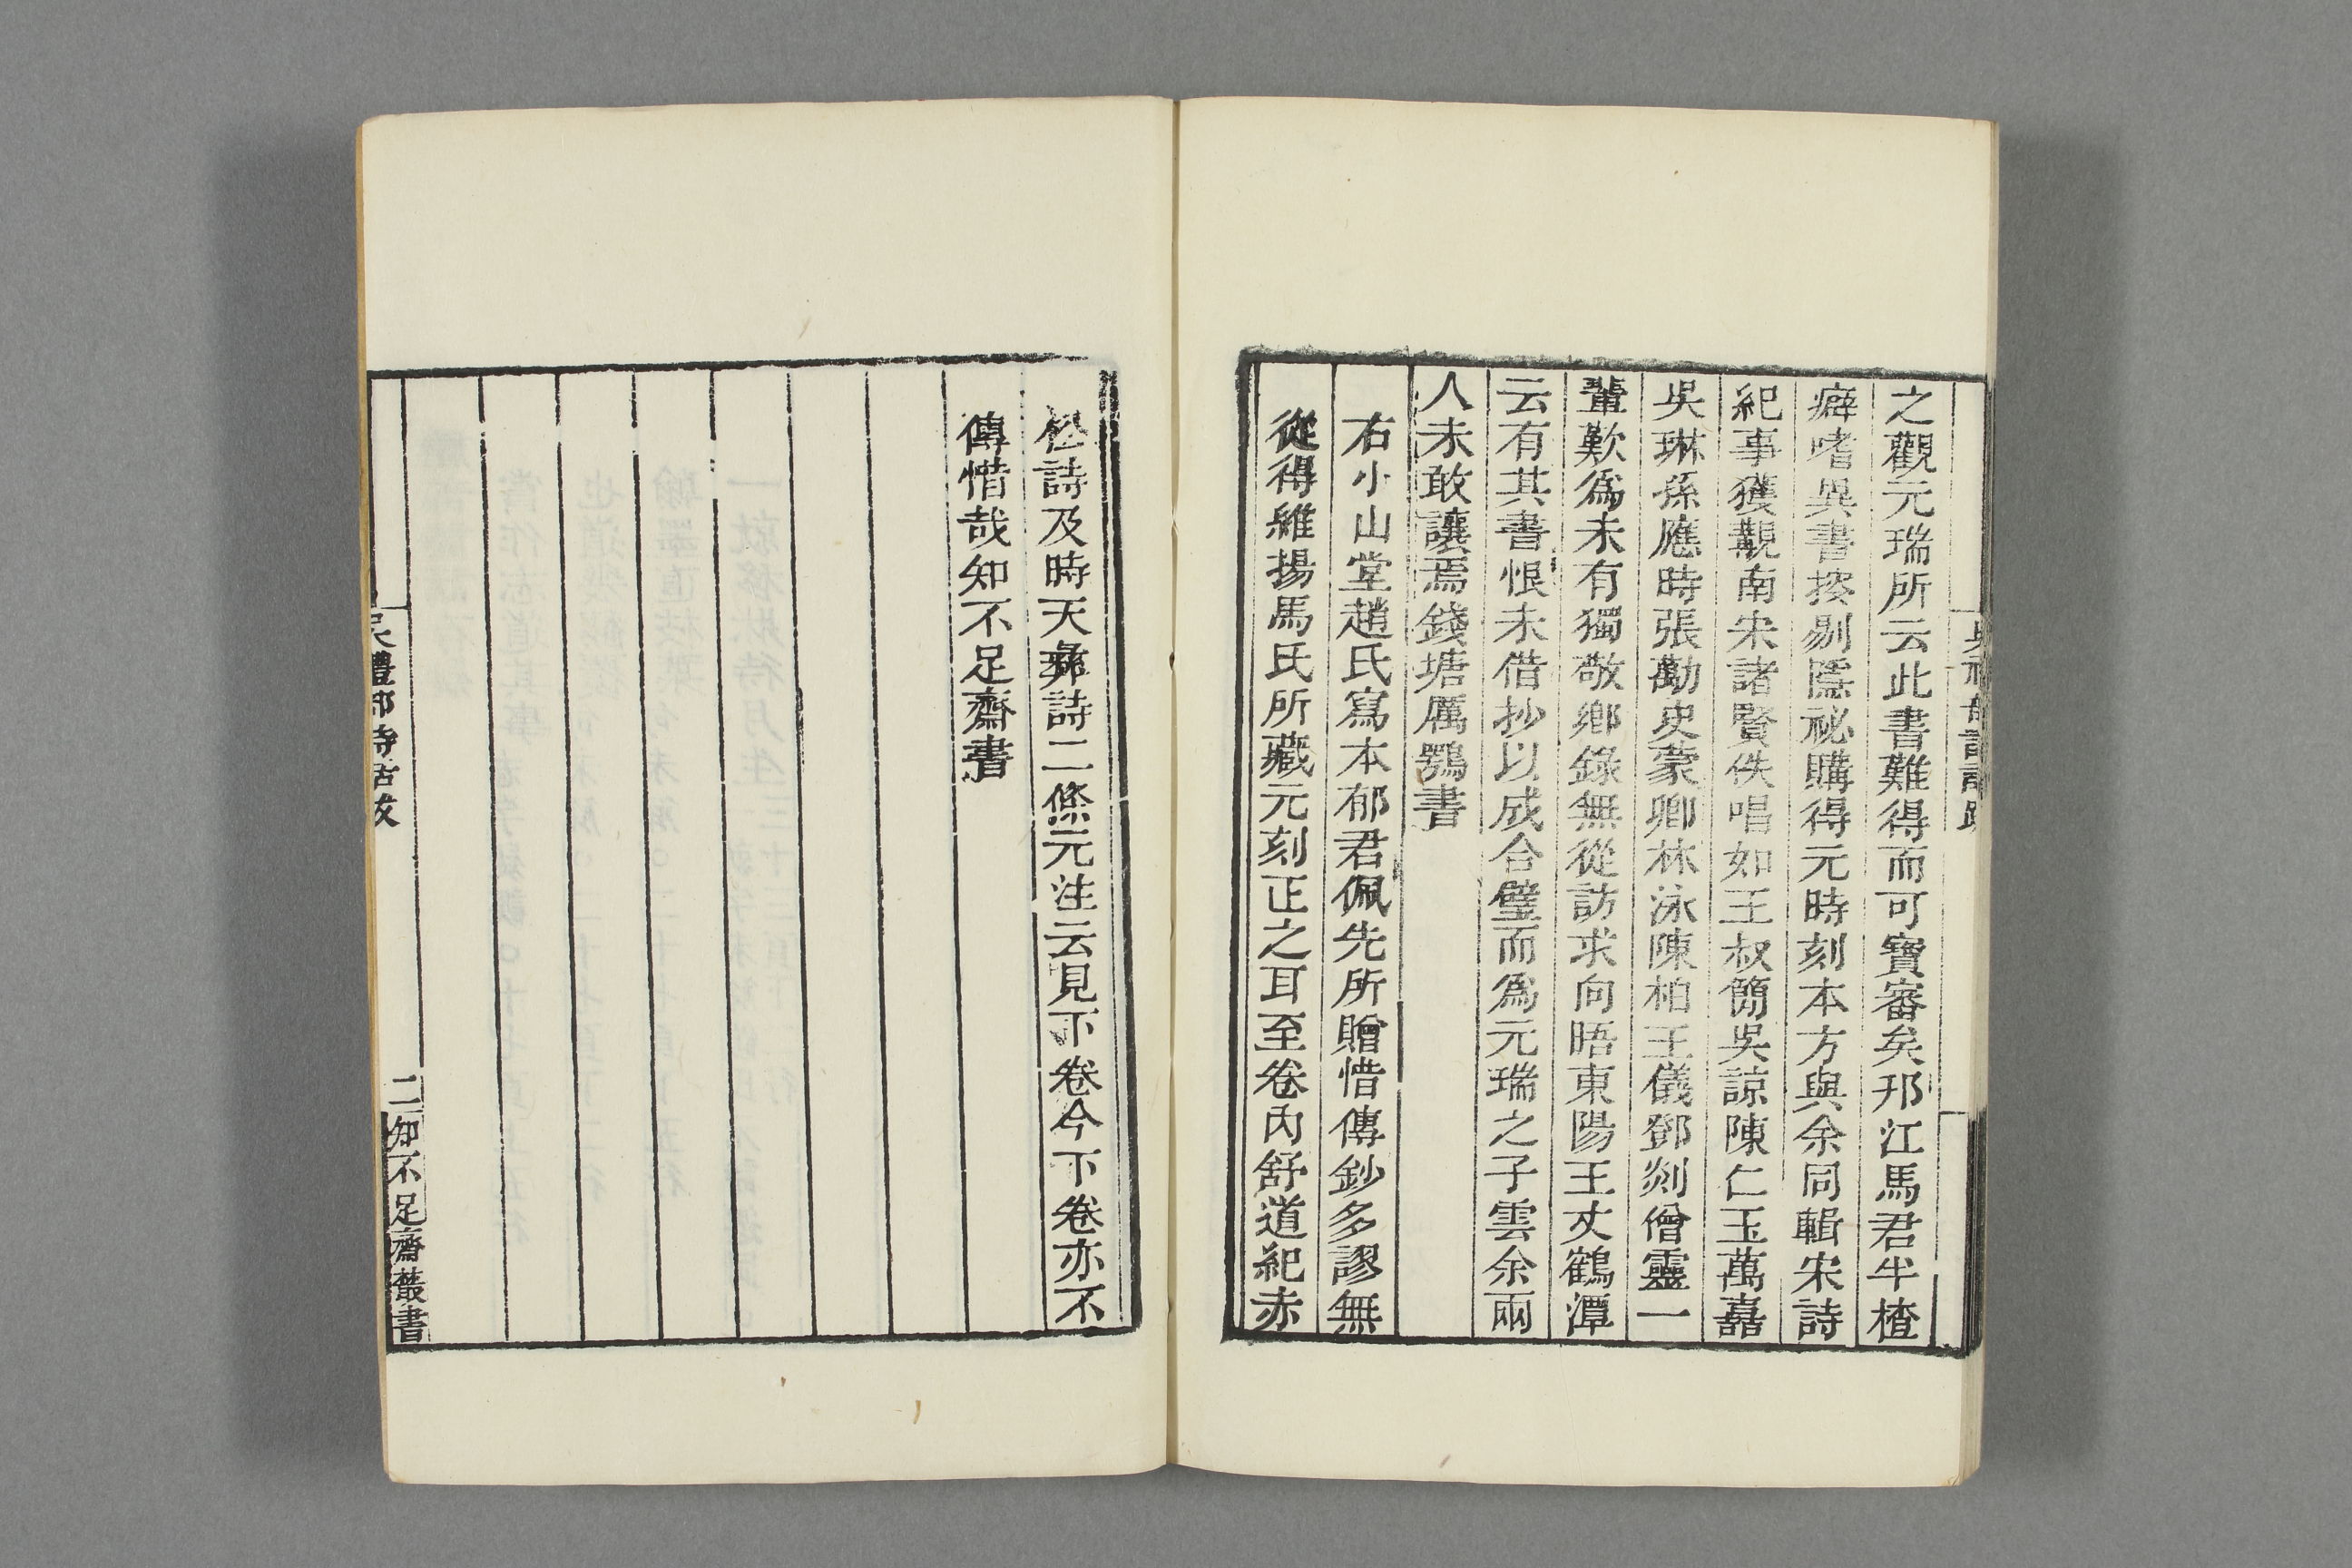 之觀元瑞所云此書難得而可寶審矣邗江馬君半楂
癖嗜異書按剔隱祕購得元時刻本方與余同輯宋詩
紀事獲覩南宋諸賢佚唱如王叔簡吳諒陳仁玉萬嘉
吳琳孫應時張勱史蒙卿林泳陳柏王儀鄧剡僧靈一
輩歎爲未有獨敬鄉錄無從訪求向晤東陽王丈鶴潭
云有其書恨未借抄以成合璧而爲元瑞之子雲余兩
人未敢讓焉錢塘厲鶚書
右小山堂趙氏寫本郁君佩先所贈惜傳鈔多謬無
從得維揚馬氏所藏元刻正之耳至卷內舒道紀赤
松詩及時天彝詩二條元注云見下卷今下卷亦不
傳惜哉知不足齋書
吳禮部詩話跋
二
知不足齋叢書